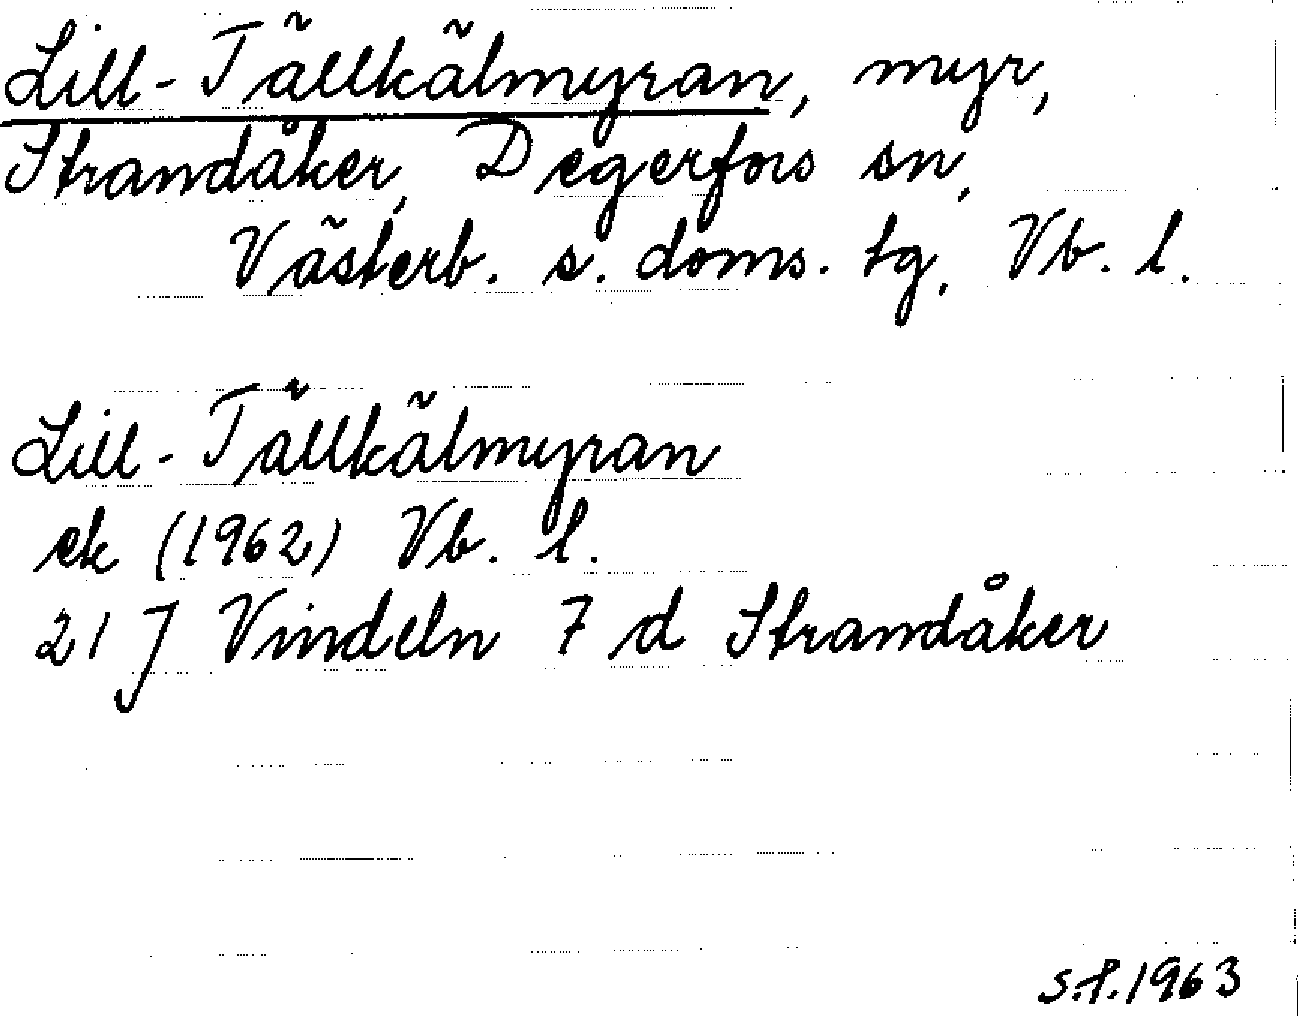 Lill-Tällkälmyran, myr,
Strandåker, Degerfors sn,
Västerb. s. doms. tg, Vb. l.
Lill-Tällkälmyran
ek (1962) Vb. l.
21 J Vindeln 7 d Strandåker
S.P. 1963